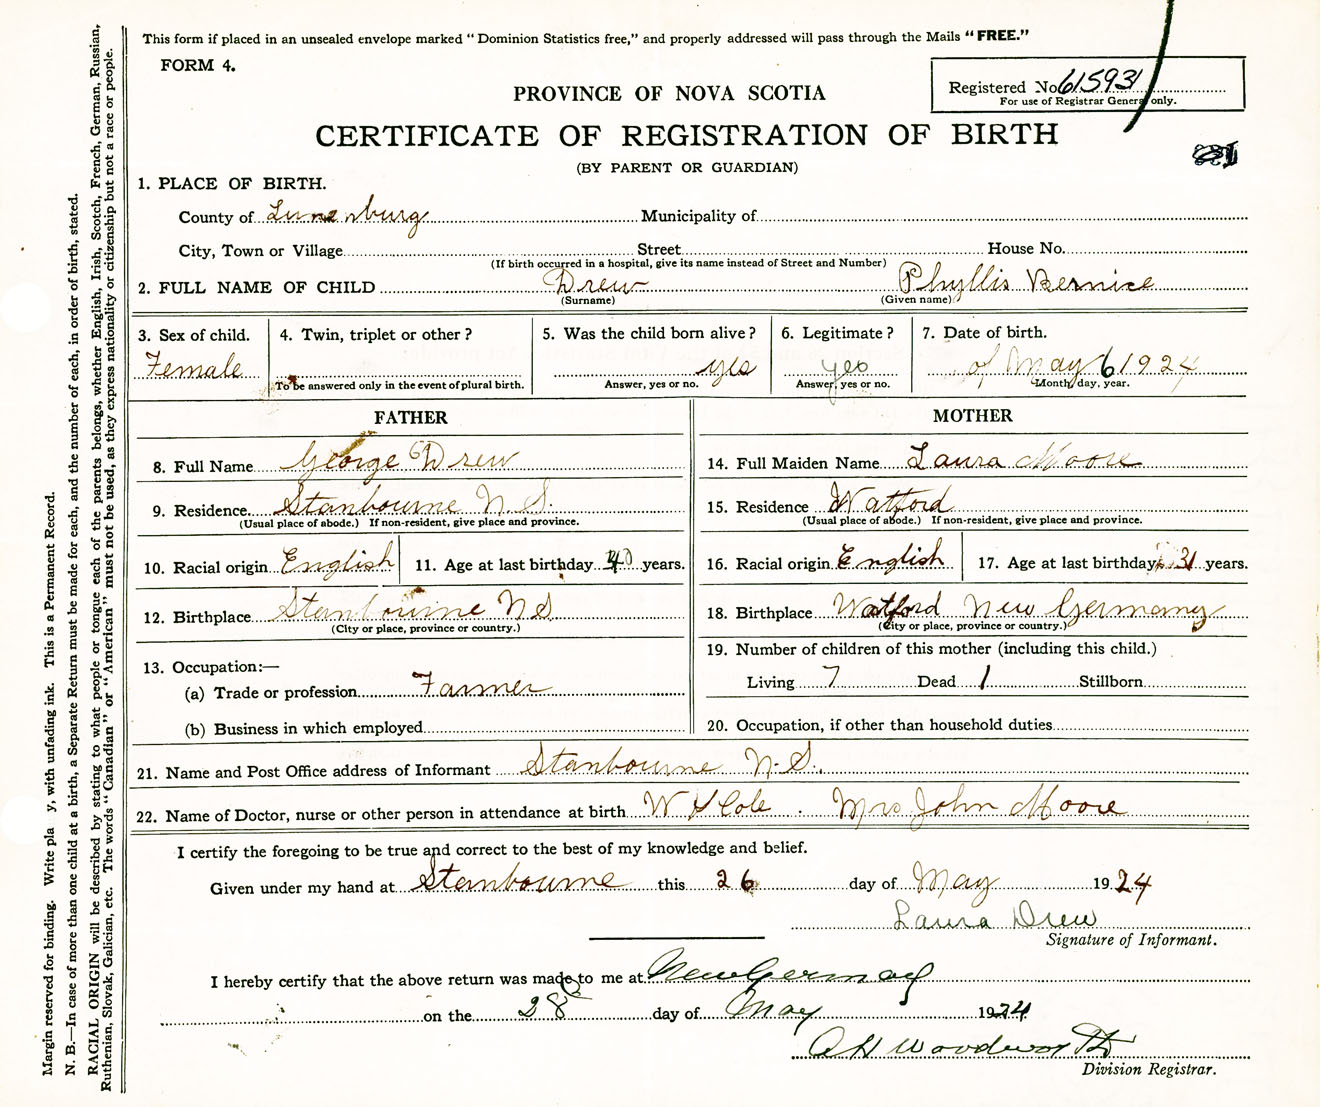 This form if placed in an unsealed envelope marked "Dominion Statistics free," and properly addressed will pass through the Mails "FREE."
FORM 4.
Registered No. 615931
For use of Registrar General only.
PROVINCE OF NOVA SCOTIA
CERTIFICATE OF REGISTRATION OF BIRTH
(BY PARENT OR GUARDIAN)
1. PLACE OF BIRTH.
County of Lunenburg Municipality of
City, Town or Village Street House No.
(If birth occurred in a hospital, give its name instead of Street and Number)
2. FULL NAME OF CHILD Drew Phyllis Bernice
(Surname) (Given name)
3. Sex of child. 4. Twin, triplet or other? 5. Was the child born alive? 6. Legitimate? 7. Date of birth.
Female yes yes of May 6 1924
To be answered only in the event of plural birth. Answer, yes or no. Answer, yes or no. Month, day, year.
FATHER MOTHER
8. Full Name George Drew 14. Full Maiden Name Laura Moore
9. Residence. Stanbourne N.S. 15. Residence Watford
(Usual place of abode.) If non-resident, give place and province. (Usual place of abode.) If non-resident, give place and province.
10. Racial origin English 11. Age at last birthday 40 years. 16. Racial origin English 17. Age at last birthday 31 years.
12. Birthplace Stanbourne N.S 18. Birthplace Watford New Germany
(City or place, province or country.) (City or place, province or country.)
13. Occupation:— 19. Number of children of this mother (including this child.)
(a) Trade or profession Farmer Living 7 Dead 1 Stillborn
(b) Business in which employed 20. Occupation, if other than household duties
21. Name and Post Office address of Informant Stanbourne N.S.
22. Name of Doctor, nurse or other person in attendance at birth W H Cole. Mrs John Moore
I certify the foregoing to be true and correct to the best of my knowledge and belief.
Given under my hand at Stanbourne this 26 day of May 1924
Laura Drew
Signature of Informant.
I hereby certify that the above return was made to me at New Germany
on the 28 day of May 1924
Woodworth
Division Registrar.
Margin reserved for binding. Write pla y, with unfading ink. This is a Permanent Record.
N. B.—In case of more than one child at a birth, a Separate Return must be made for each, and the number of each, in order of birth, stated.
RACIAL ORIGIN will be described by stating to what people or tongue each of the parents belongs, whether English, Irish, Scotch, French, German, Russian,
Ruthenian, Slovak, Galician, etc. The words "Canadian" or "American" must not be used, as they express nationality or citizenship but not a race or people.